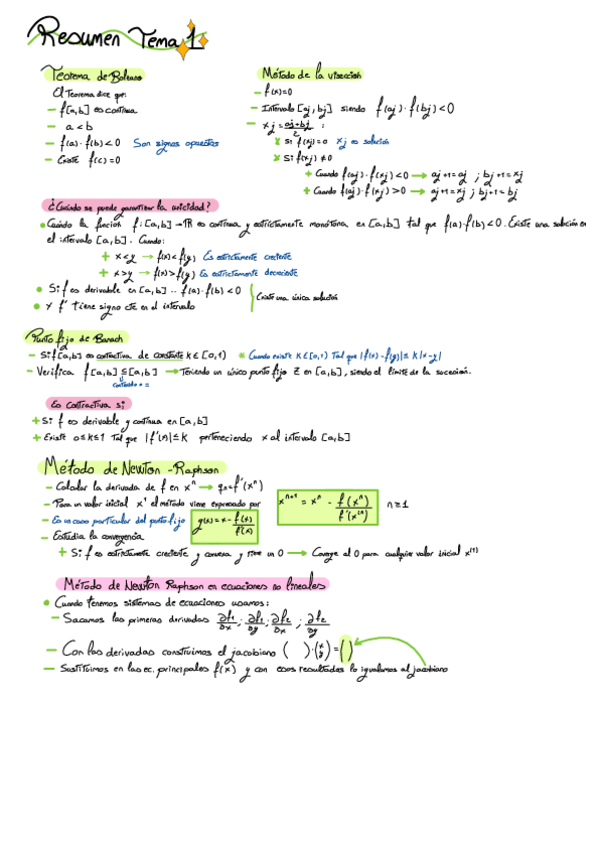 Resumen Tema 1
Teorema de Bolzano
El Teorema dice que:
- f[a,b] es continua
- a < b
- f(a)·f(b) < 0 Son signos opuestos
- Existe f(c)=0
Método de la visección
- f(x)=0
- Intervalo [aj, bj] siendo f(aj)·f(bj) < 0
- xj = aj+bj / 2 :
Si f(xj)=0 xj es solución
Si f(xj) ≠ 0
+ Cuando f(aj)·f(xj) < 0 → aj+1=aj ; bj+1=xj
+ Cuando f(aj)·f(xj) > 0 → aj+1=xj ; bj+1=bj
¿Cuándo se puede garantizar la unicidad?
• Cuándo la función f:[a,b]→R es continua y estrictamente monótona en [a,b] tal que f(a)·f(b) < 0. Existe una solución en
el intervalo [a,b]. Cuando:
+ x<y → f(x)<f(y) Es estrictamente creciente
+ x>y → f(x)>f(y) Es estrictamente decreciente
• Si f es derivable en [a,b] .. f(a)·f(b) < 0
• x f' tiene signo cte en el intervalo
Existe una única solución
Punto fijo de Banach
- Si f[a,b] es contractiva de constante k ∈ [0,1) * Cuando existe k ∈ [0,1) Tal que |f(x) - f(y)| ≤ k|x-y|
- Verifica f[a,b] ⊆ [a,b] → Teniendo un único punto fijo z en [a,b], siendo el límite de la sucesión.
contenido o =
Es contractiva si
+ Si f es derivable y continua en [a,b]
+ Existe 0≤k≤1 Tal que |f'(x)| ≤ k perteneciendo x al intervalo [a,b]
Método de Newton-Raphson
- Calcular la derivada de f en xⁿ → qn=f'(xⁿ)
- Para un valor inicial x¹ el método viene expresado por xⁿ⁺¹ = xⁿ - f(xⁿ) / f'(xⁿ) n≥1
- Es un caso particular del punto fijo g(x) = x - f(x) / f'(x)
- Estudia la convergencia
+ Si f es estrictamente creciente y convexa y tiene un 0 → Converge al 0 para cualquier valor inicial x⁽¹⁾
Método de Newton Raphson en ecuaciones no lineales
• Cuando tenemos sistemas de ecuaciones usamos:
- Sacamos las primeras derivadas ∂f1/∂x ; ∂f1/∂y ; ∂f2/∂x ; ∂f2/∂y
- Con las derivadas construimos el jacobiano ( )·(x y)=( )
- Sustituimos en las ec. principales f(x) y con esos resultados lo igualamos al jacobiano